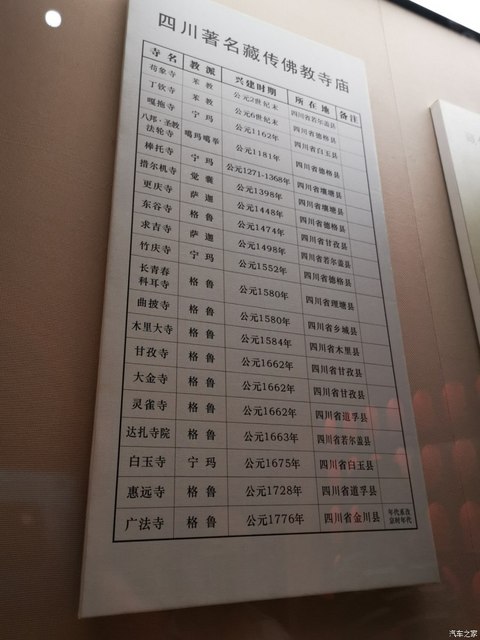 四川著名藏传佛教寺庙
寺名 教派 兴建时期 所在地 备注
苟象寺 苯教 公元2世纪末 四川省若尔盖县
丁钦寺 苯教 公元6世纪末 四川省德格县
嘎拖寺 宁玛 公元1162年 四川省白玉县
八邦·圣教
法轮寺 噶玛噶举 公元1181年 四川省德格县
棒托寺 宁玛 公元1271-1368年 四川省壤塘县
措尔机寺 觉囊 公元1398年 四川省壤塘县
更庆寺 萨迦 公元1448年 四川省德格县
东谷寺 格鲁 公元1474年 四川省甘孜县
求吉寺 萨迦 公元1498年 四川省若尔盖县
竹庆寺 宁玛 公元1552年 四川省德格县
长青春
科耳寺 格鲁 公元1580年 四川省理塘县
曲披寺 格鲁 公元1580年 四川省乡城县
木里大寺 格鲁 公元1584年 四川省木里县
甘孜寺 格鲁 公元1662年 四川省甘孜县
大金寺 格鲁 公元1662年 四川省甘孜县
灵雀寺 格鲁 公元1662年 四川省道孚县
达扎寺院 格鲁 公元1663年 四川省若尔盖县
白玉寺 宁玛 公元1675年 四川省白玉县
惠远寺 格鲁 公元1728年 四川省道孚县
广法寺 格鲁 公元1776年 四川省金川县 年代系改
宗时年代
汽车之家